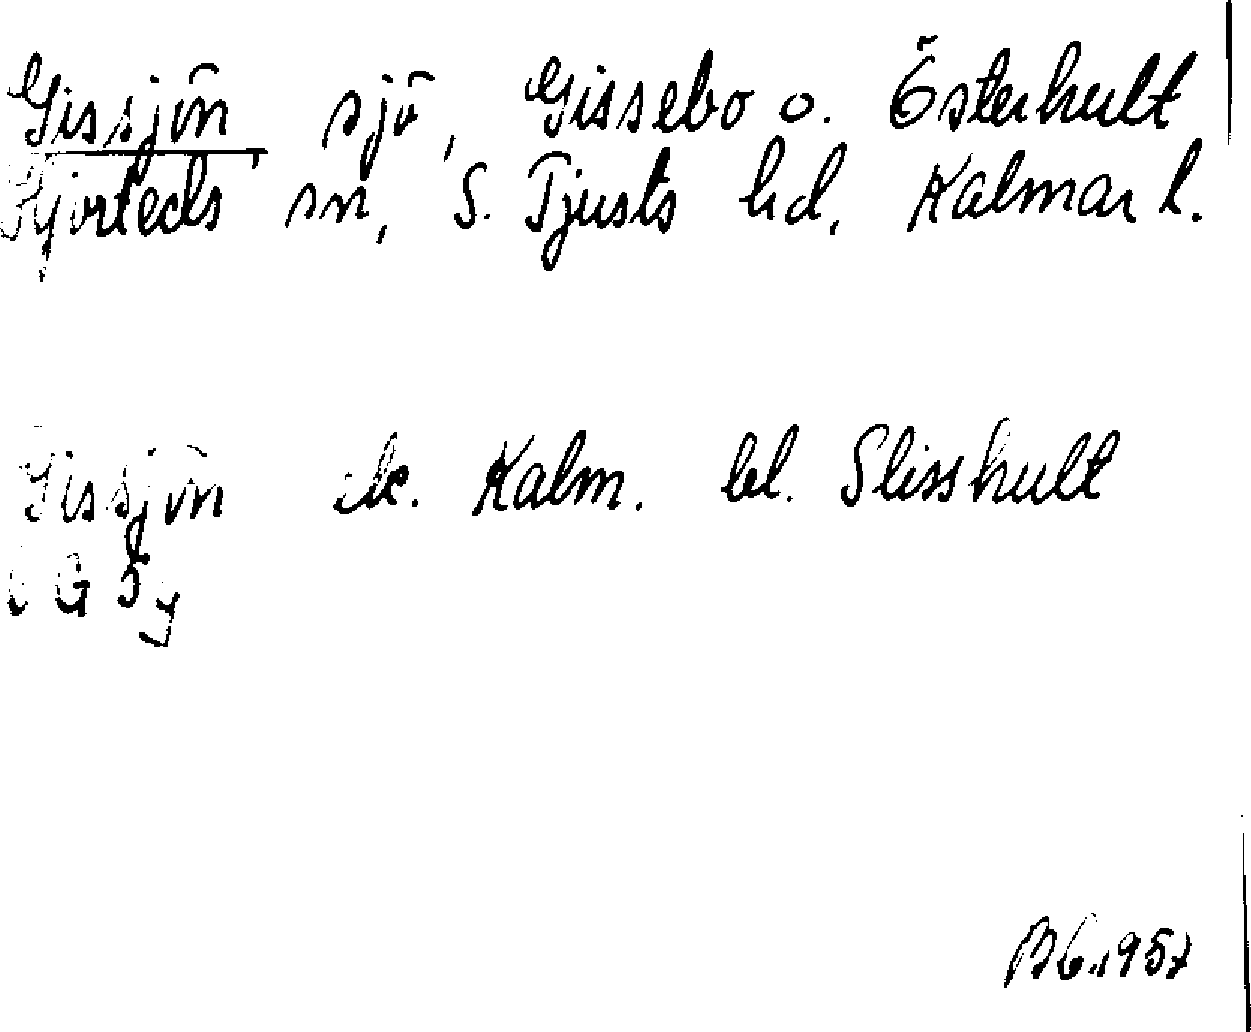 Gissjön sjö, Gissebo o. Österhult
Hjorteds sn, S. Tjusts hd, Kalmar l.
Gissjön ek. Kalm. bl. Slisshult
G 5 y
BG.1957